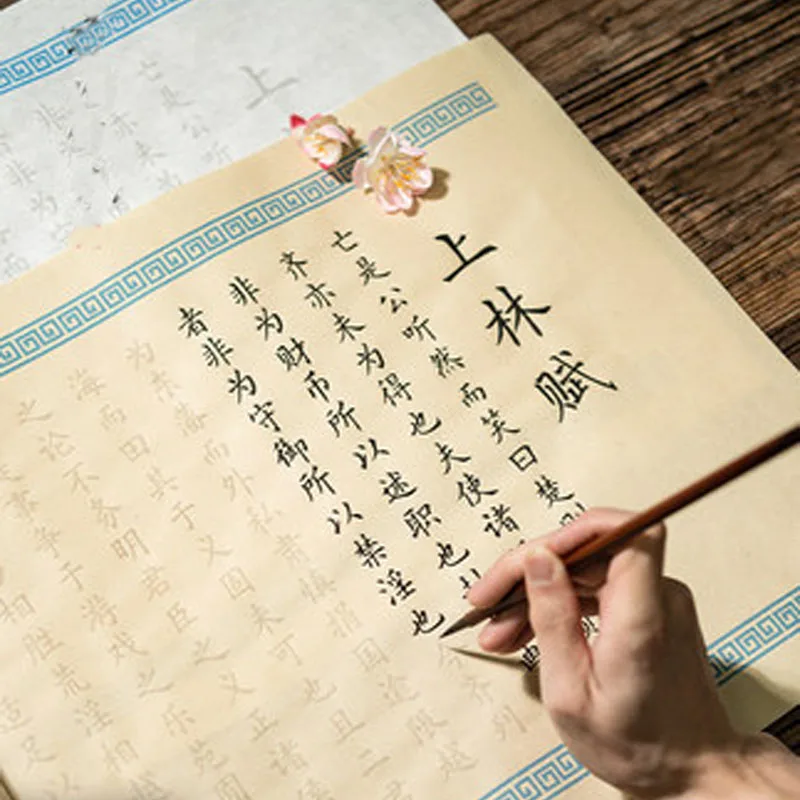 上林赋
亡是公听然而笑曰楚则
齐亦未为得也夫使诸
非为财币所以述职也封
者非为守御所以禁淫也今齐列
为东藩而外私肃慎捐国逾限越
海而田其于义固未可也且二君
之论不务明君臣之义正诸侯
事争于游戏之乐苑囿
相胜荒淫相越
适足以